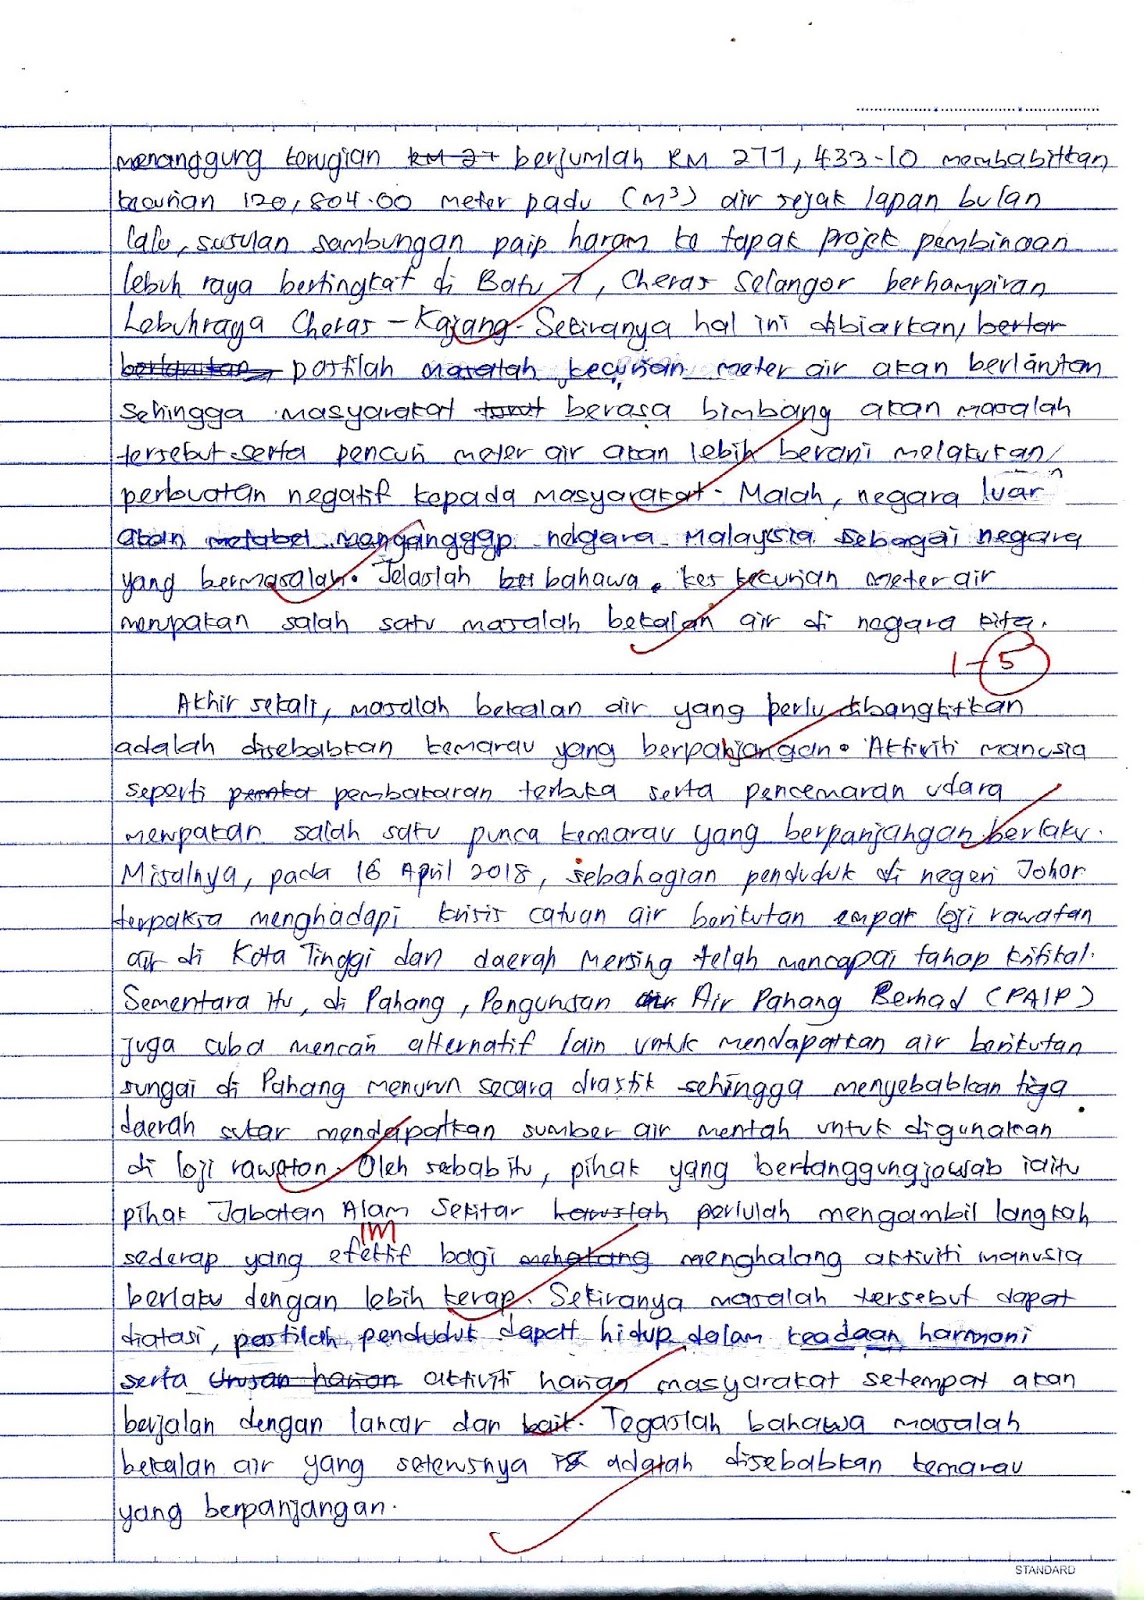 menanggung kerugian RM 27 berjumlah RM 277,433-10 membabitkan
kecurian 120,804.00 meter padu (m³) air sejak lapan bulan
lalu, susulan sambungan paip haram ke tapak projek pembinaan
lebuh raya bertingkat di Batu 7, Cheras Selangor berhampiran
Lebuhraya Cheras - Kajang. Sekiranya hal ini dibiarkan, berlar
berlanutan pastilah masalah kecurian meter air akan berlanutan
sehingga masyarakat turut berasa bimbang akan masalah
tersebut serta pencuri meter air akan lebih berani melakukan
perbuatan negatif kepada masyarakat. Malah, negara luar
akan melabel menganggap negara Malaysia sebagai negara
yang bermasalah. Jelaslah bahawa kes kecurian meter air
merupakan salah satu masalah bekalan air di negara kita.
1-5
Akhir sekali, masalah bekalan air yang perlu dibangkitkan
adalah disebabkan kemarau yang berpanjangan. Aktiviti manusia
seperti pembakaran terbuka serta pencemaran udara
merupakan salah satu punca kemarau yang berpanjangan berlaku.
Misalnya, pada 16 April 2018, sebahagian penduduk di negeri Johor
terpaksa menghadapi krisis catuan air berikutan empat loji rawatan
air di Kota Tinggi dan daerah Mersing telah mencapai tahap kritikal.
Sementara itu, di Pahang, Pengurusan air Air Pahang Berhad (PAIP)
juga cuba mencari alternatif lain untuk mendapatkan air berikutan
sungai di Pahang menurun secara drastik sehingga menyebabkan tiga
daerah sukar mendapatkan sumber air mentah untuk digunakan
di loji rawatan. Oleh sebab itu, pihak yang bertanggungjawab iaitu
pihak Jabatan Alam Sekitar haruslah perlulah mengambil langkah
IM
sederap yang efektif bagi mehalang menghalang aktiviti manusia
berlaku dengan lebih kerap. Sekiranya masalah tersebut dapat
diatasi, pastilah penduduk dapat hidup dalam keadaan harmoni
serta urusan harian aktiviti harian masyarakat setempat akan
berjalan dengan lancar dan baik. Tegaslah bahawa masalah
bekalan air yang seterusnya adalah disebabkan kemarau
yang berpanjangan.
STANDARD